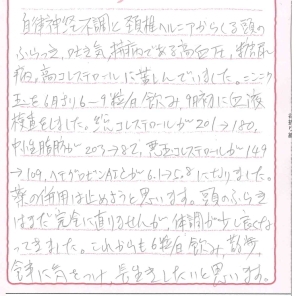 自律神経不調と頚椎ヘルニアからくる頭の
ふらつき、吐き気、持病である高血圧、糖尿
病、高コレステロールに苦しんでいました。ニンニク
玉を6月より6〜9粒/日飲み、9月初に血液
検査をしました。総コレステロールが201→180、
中性脂肪が203→82、悪玉コレステロールが149
→109、ヘモグロビンA1Cが6.1→5.8になりました。
薬の併用は止めようと思います。頭のふらつき
はまだ完全に直りませんが、体調が少し良くな
ってきました。これからも6粒/日飲み、散歩、
食事に気をつけ、長生きしたいと思います。